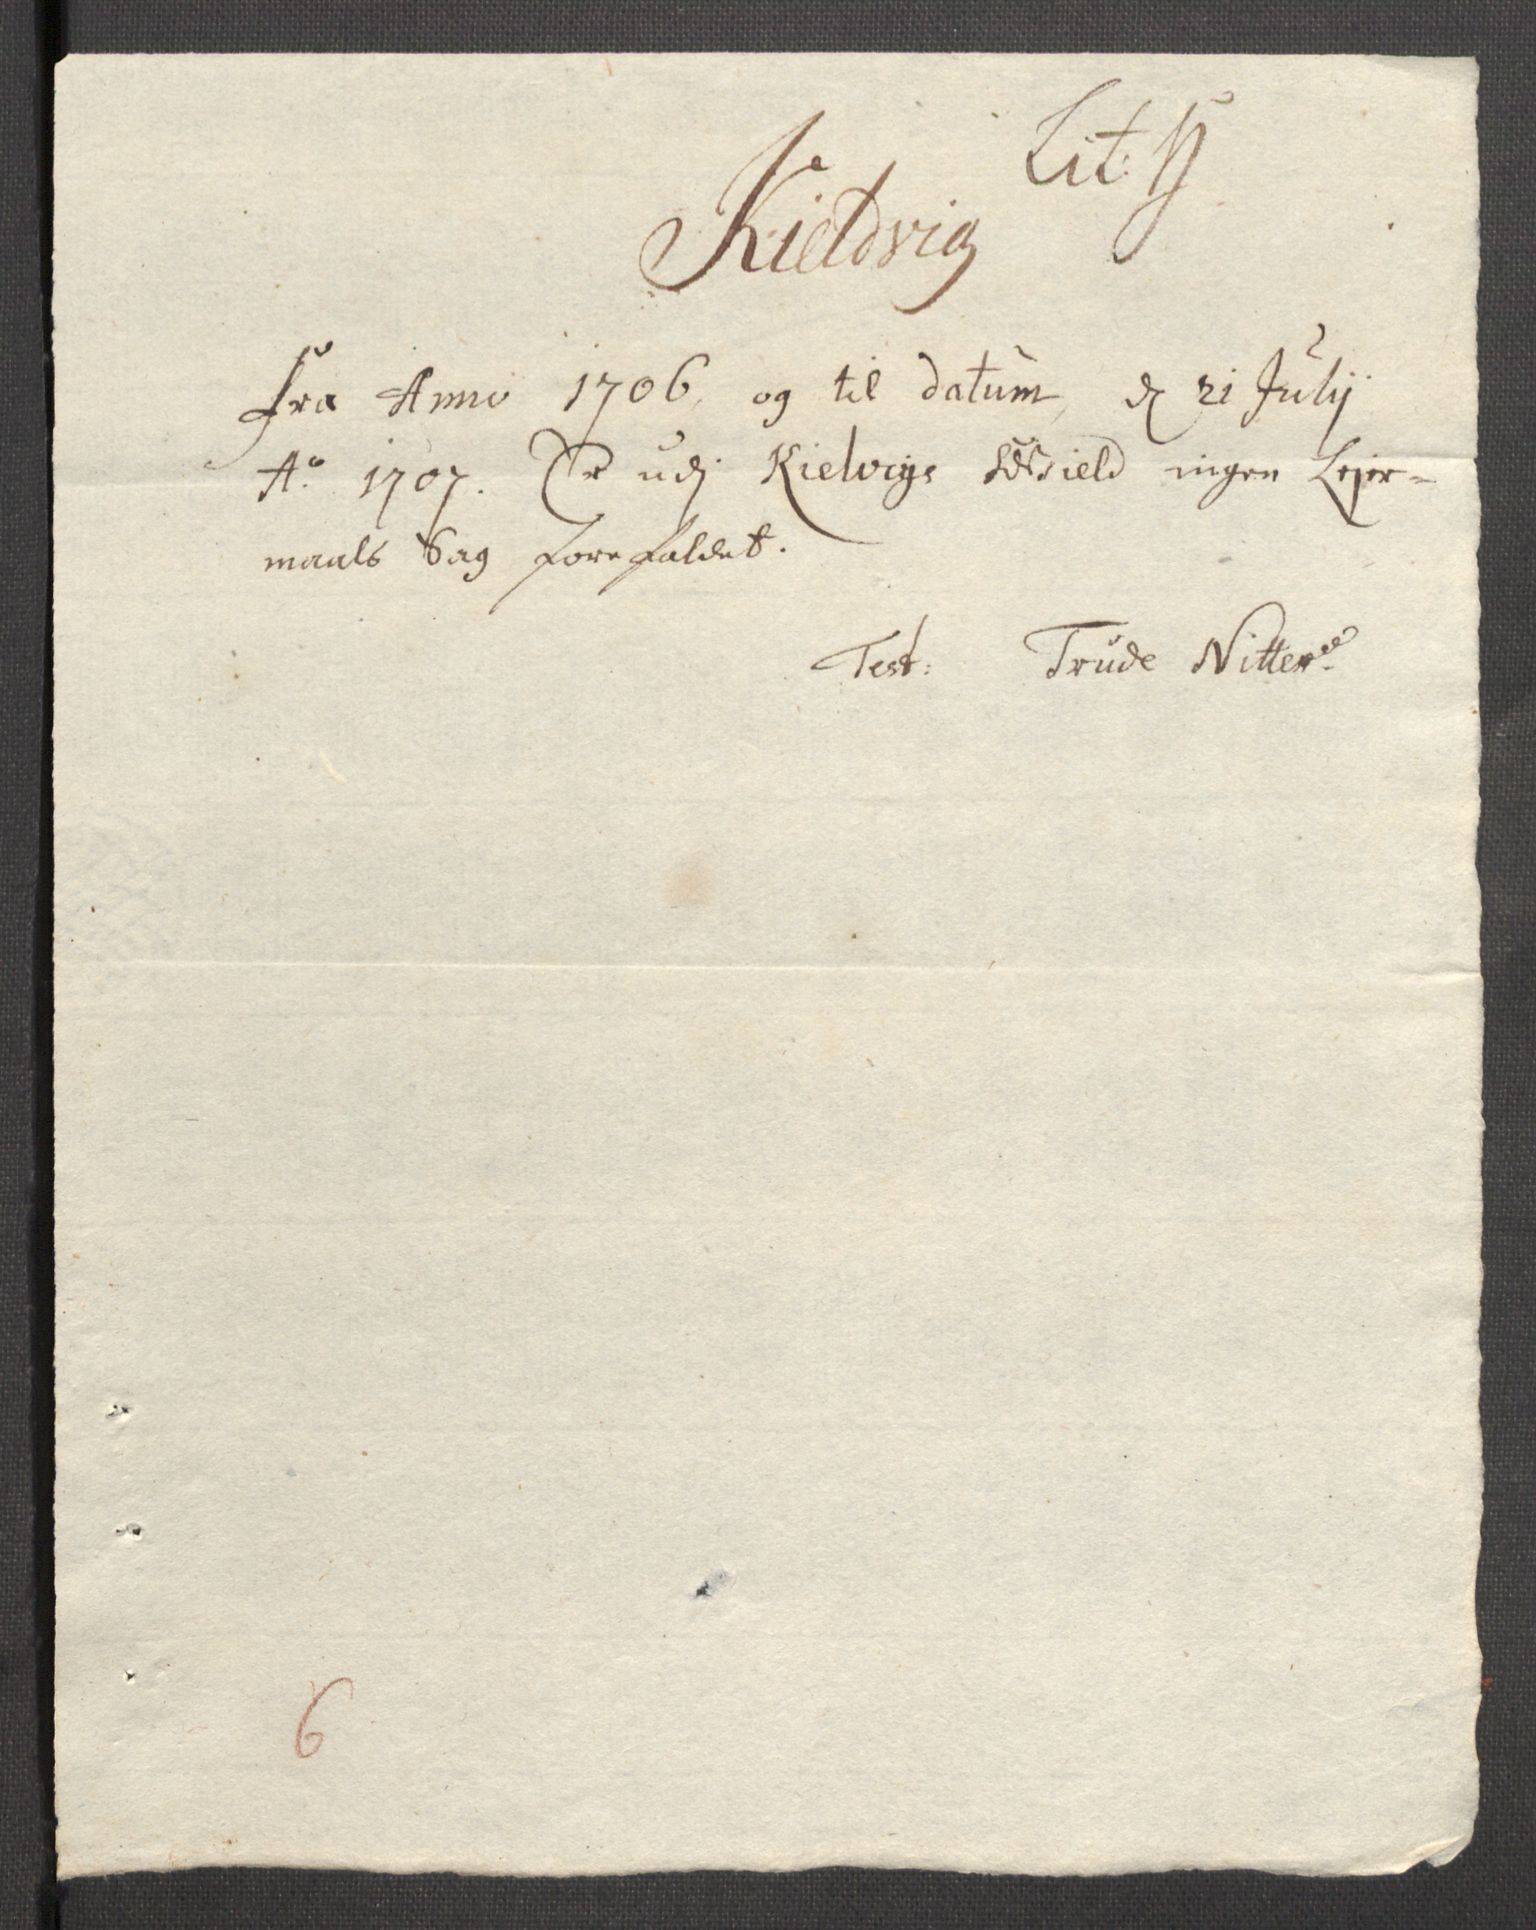 Lit:
Kieldvig
fra Anno 1706, og til datum, d 21 Julij
Ao 1707. Er udj Kielvigs ingen Lejer=
maals Sag forefaldet.
Test: Trude Nitter
6